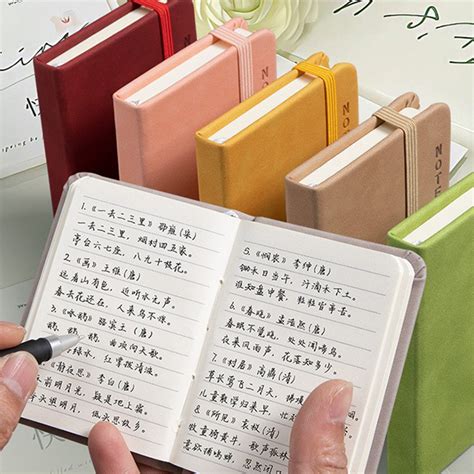 NOTE
NOTE
NOTE
1.《一去二三里》邵雍(宋)
一去二三里,烟村四五家。
亭台六七座,八九十枝花。
2.《画》王维(唐)
远看山有色,近听水无声。
春去花还在,人来鸟不惊。
3.《咏鹅》骆宾王(唐)
鹅,鹅,鹅,曲项向天歌。
绿水,红掌拨清波。
《静夜思》李白(唐)
前明月光,疑是地上霜。
望明月,低头思故乡。
5.《悯农》李绅(唐)
锄禾日当午,汗滴禾下土。
谁知盘中餐,粒粒皆辛苦。
6.《春晓》孟浩然(唐)
春眠不觉晓,处处闻啼鸟。
夜来风雨声,花落知多少。
7.《村居》高鼎(清)
草长莺飞二月天,
儿童散学归来早,忙
8.《所见》袁枚(清)
牧童骑黄牛,歌声振林
意欲捕鸣蝉